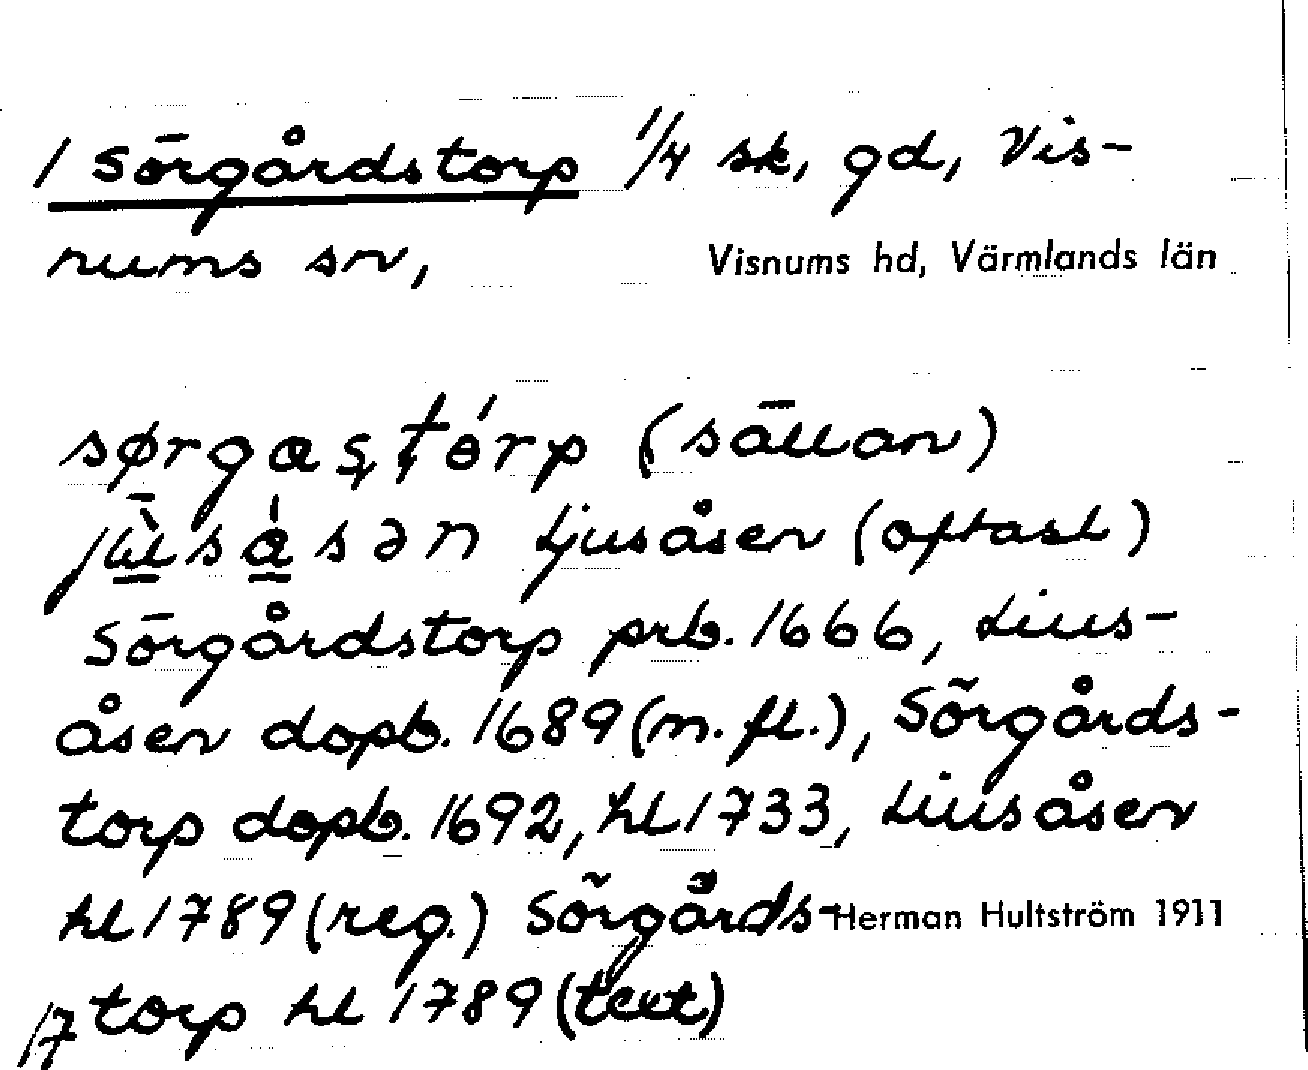 1 Sörgårdstorp 1/4 sk, gd, Vis-
nums sn,
Visnums hd, Värmlands län
sørgasṭórp (sällan)
jùsàsən Ljusåsen (oftast)
Sörgårdstorp prb. 1666, Lius-
åsen dopb. 1689 (m. fl.), Sörgårds-
torp dopb. 1692, hl 1733, Liusåsen
hl 1789 (reg.) Sörgårds-
Herman Hultström 1911
torp hl 1789 (text)
17